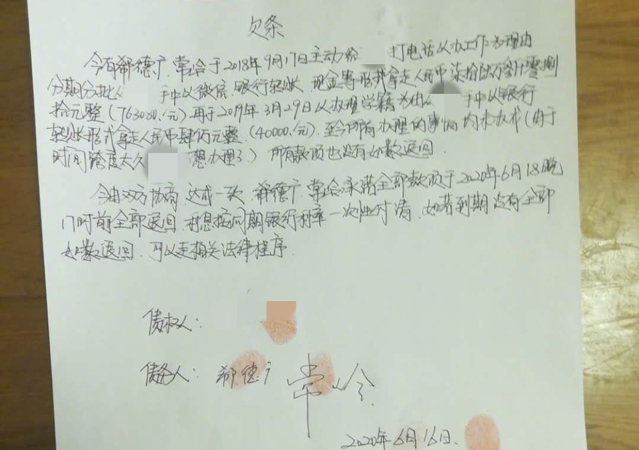 欠条
今有郗德广、常岭于2018年9月17日主动给 打电话以办工作为理由
分期分批从 手中以微信、银行转账、现金等形式拿走人民币柒拾陆万叁仟零捌
拾元整(763080元)再于2019年3月29日以办理学籍为由从 手中以银行
转账形式拿走人民币肆万元整(40000元)至今所有办理的事情均未办成(由于
时间跨度太久 不想办理了)所有款项也没有如数退回。
今由双方协商达成一致 郗德广、常岭承诺全部款项于2020年6月18晚
17时前全部退回 利息按同期银行利率一次性付清,如若到期没有全部
如数退回,可以走相关法律程序。
债权人:
债务人:郗德广 常岭
2020年6月16日